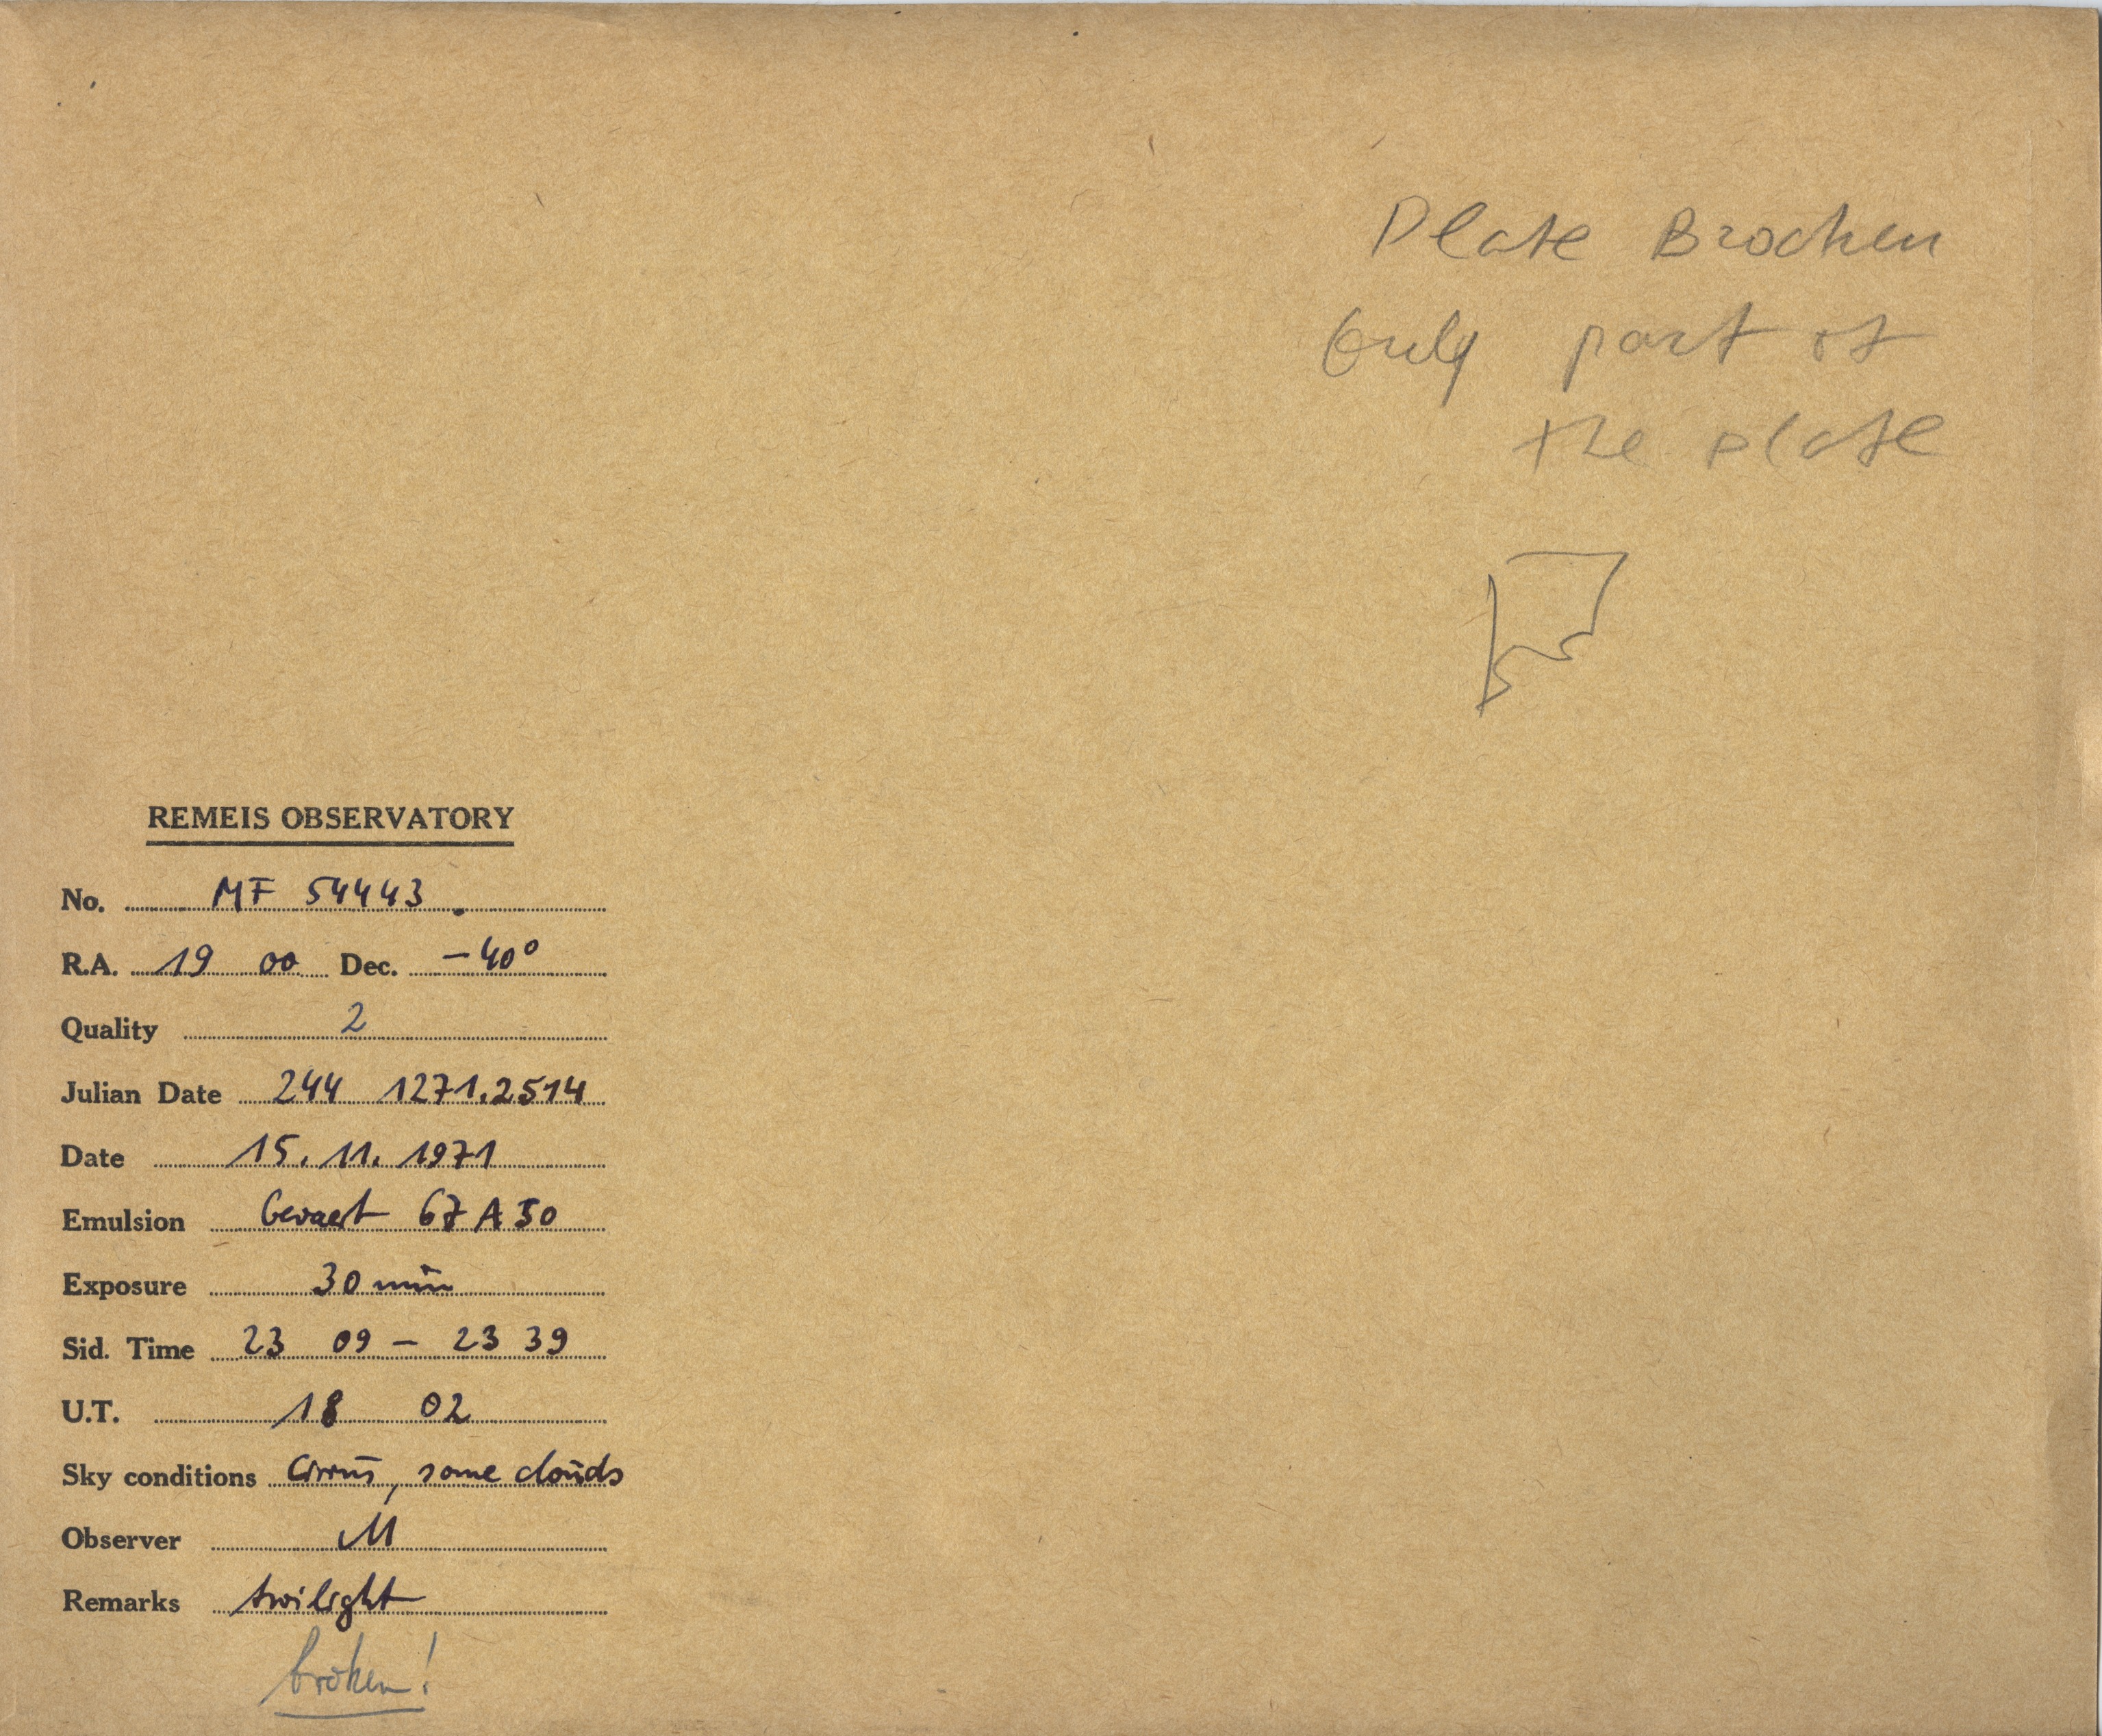 Plate Brocken
Only part of
the plate
REMEIS OBSERVATORY
No. MF 54443
R.A. 19 00 Dec. -40°
Quality 2
Julian Date 244 1271.2514
Date 15. 11. 1971
Emulsion Gevaert 67 A 50
Exposure 30 min
Sid. Time 23 09 - 23 39
U.T. 18 02
Sky conditions Cirrus, some clouds
Observer M
Remarks twilight
broken!